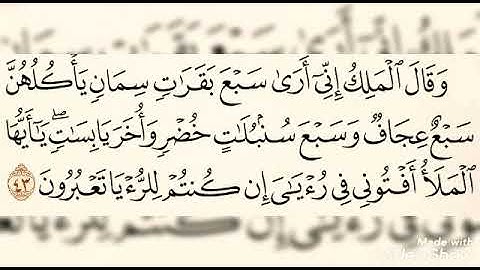 وَقَالَ ٱلْمَلِكُ إِنِّىٓ أَرَىٰ سَبْعَ بَقَرَٰتٍ سِمَانٍ يَأْكُلُهُنَّ
سَبْعٌ عِجَافٌ وَسَبْعَ سُنۢبُلَٰتٍ خُضْرٍ وَأُخَرَ يَابِسَٰتٍ ۖ يَٰٓأَيُّهَا
ٱلْمَلَأُ أَفْتُونِى فِى رُءْيَٰىَ إِن كُنتُمْ لِلرُّءْيَا تَعْبُرُونَ ٤٣
Made with